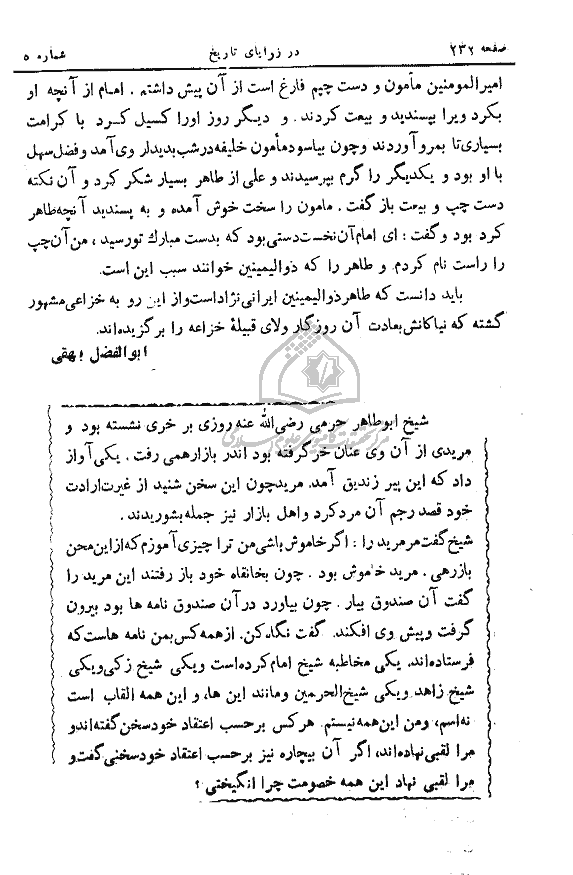 صفحه ۲۳۲ در زوایای تاریخ شماره ۵
امیرالمومنین مأمون و دست چپم فارغ است از آن پیش داشتم . امام از آنچه او
بکرد ویرا بپسندید و بیعت کردند . و دیگر روز اورا کسیل کرد با کرامت
بسیاری تا بمرو آوردند وچون بیاسود مأمون خلیفه در شب بدیدار وی آمد و فضل سهل
با او بود و یکدیگر را گرم بپرسیدند و علی از طاهر بسیار شکر کرد و آن نکته
دست چپ و بیعت باز گفت . مامون را سخت خوش آمده و به پسندید آنچه طاهر
کرد بود وگفت : ای امام آن نخست دستی بود که بدست مبارك تو رسید ، من آن چپ
را راست نام کردم و طاهر را که ذوالیمینین خوانند سبب این است.
باید دانست که طاهر ذوالیمینین ایرانی نژاد است واز این رو به خزاعی مشهور
گشته که نیاکانش بعادت آن روزگار ولای قبیلهٔ خزاعه را برگزیده‌اند.
ابوالفضل بیهقی
شیخ ابوطاهر حرمی رضی‌الله عنه روزی بر خری نشسته بود و
مریدی از آن وی عنان خر گرفته بود اندر بازار همی رفت . یکی آواز
داد که این پیر زندیق آمد. مرید چون این سخن شنید از غیرت ارادت
خود قصد رجم آن مرد کرد واهل بازار نیز جمله بشوریدند .
شیخ گفت مر مرید را : اگر خاموش باشی من ترا چیزی آموزم که از این محن
باز رهی . مرید خاموش بود . چون بخانقاه خود باز رفتند این مرید را
گفت آن صندوق بیار . چون بیاورد در آن صندوق نامه ها بود بیرون
گرفت وپیش وی افکند. گفت نگاه کن. از همه کس بمن نامه هاست که
فرستاده‌اند. یکی مخاطبه شیخ امام کرده است ویکی شیخ زکی ویکی
شیخ زاهد ویکی شیخ‌الحرمین ومانند این ها، و این همه القاب است
نه اسم، ومن این همه نیستم. هر کس بر حسب اعتقاد خود سخن گفته‌اند و
مرا لقبی نهاده‌اند، اگر آن بیچاره نیز بر حسب اعتقاد خود سخنی گفت و
مرا لقبی نهاد این همه خصومت چرا انگیختی ؟